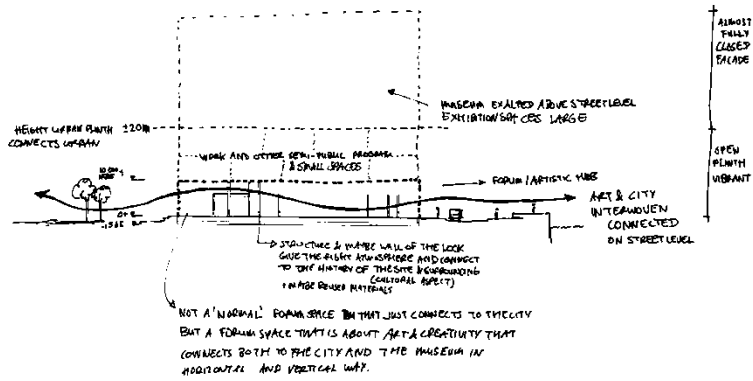 ALMOST
FULLY
CLOSED
FACADE
MUSEUM EXALTED ABOVE STREET LEVEL
EXHIBITION SPACES LARGE
HEIGHT URBAN PLINTH ±20m
CONNECTS URBAN
WORK AND OTHER SEMI-PUBLIC PROGRAM
& SMALL SPACES
OPEN
PLINTH
VIBRANT
FORUM / ARTISTIC HUB
ART & CITY
INTERWOVEN
CONNECTED
ON STREET LEVEL
STRUCTURE & MAYBE WALL OF THE LOCK
GIVE THE RIGHT ATMOSPHERE AND CONNECT
TO THE HISTORY OF THE SITE & SURROUNDING
(CULTURAL ASPECT)
+ MAYBE REUSED MATERIALS
NOT A 'NORMAL' FORUM SPACE THAT JUST CONNECTS TO THE CITY
BUT A FORUM SPACE THAT IS ABOUT ART & CREATIVITY THAT
CONNECTS BOTH TO THE CITY AND THE MUSEUM IN
HORIZONTAL AND VERTICAL WAY.